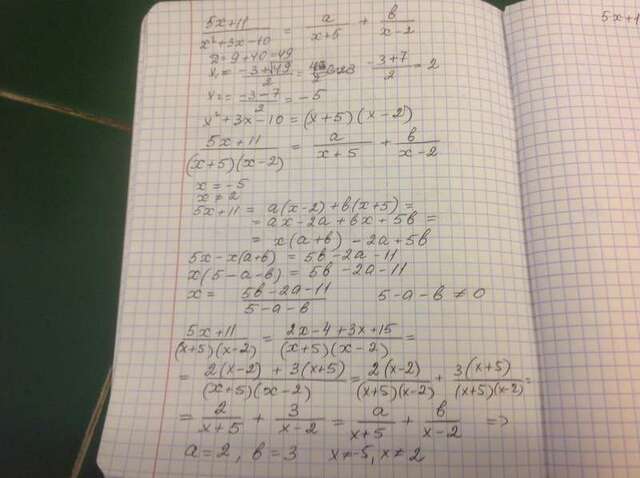 5x+11/(x²+3x-10) = a/(x+5) + b/(x-2)
D = 9+40 = 49
x₁ = (-3+√49)/2 = (-3+7)/2 = 2
x₂ = (-3-7)/2 = -5
x²+3x-10 = (x+5)(x-2)
(5x+11)/((x+5)(x-2)) = a/(x+5) + b/(x-2)
x = -5
x ≠ 2
5x+11 = a(x-2)+b(x+5) =
= ax-2a+bx+5b =
= x(a+b) -2a+5b
5x-x(a+b) = 5b-2a-11
x(5-a-b) = 5b-2a-11
x = (5b-2a-11)/(5-a-b) 5-a-b ≠ 0
(5x+11)/((x+5)(x-2)) = (2x-4+3x+15)/((x+5)(x-2)) =
= (2(x-2)+3(x+5))/((x+5)(x-2)) = 2(x-2)/((x+5)(x-2)) + 3(x+5)/((x+5)(x-2)) =
= 2/(x+5) + 3/(x-2) = a/(x+5) + b/(x-2) =>
a=2, b=3 x≠-5, x≠2
5x+1